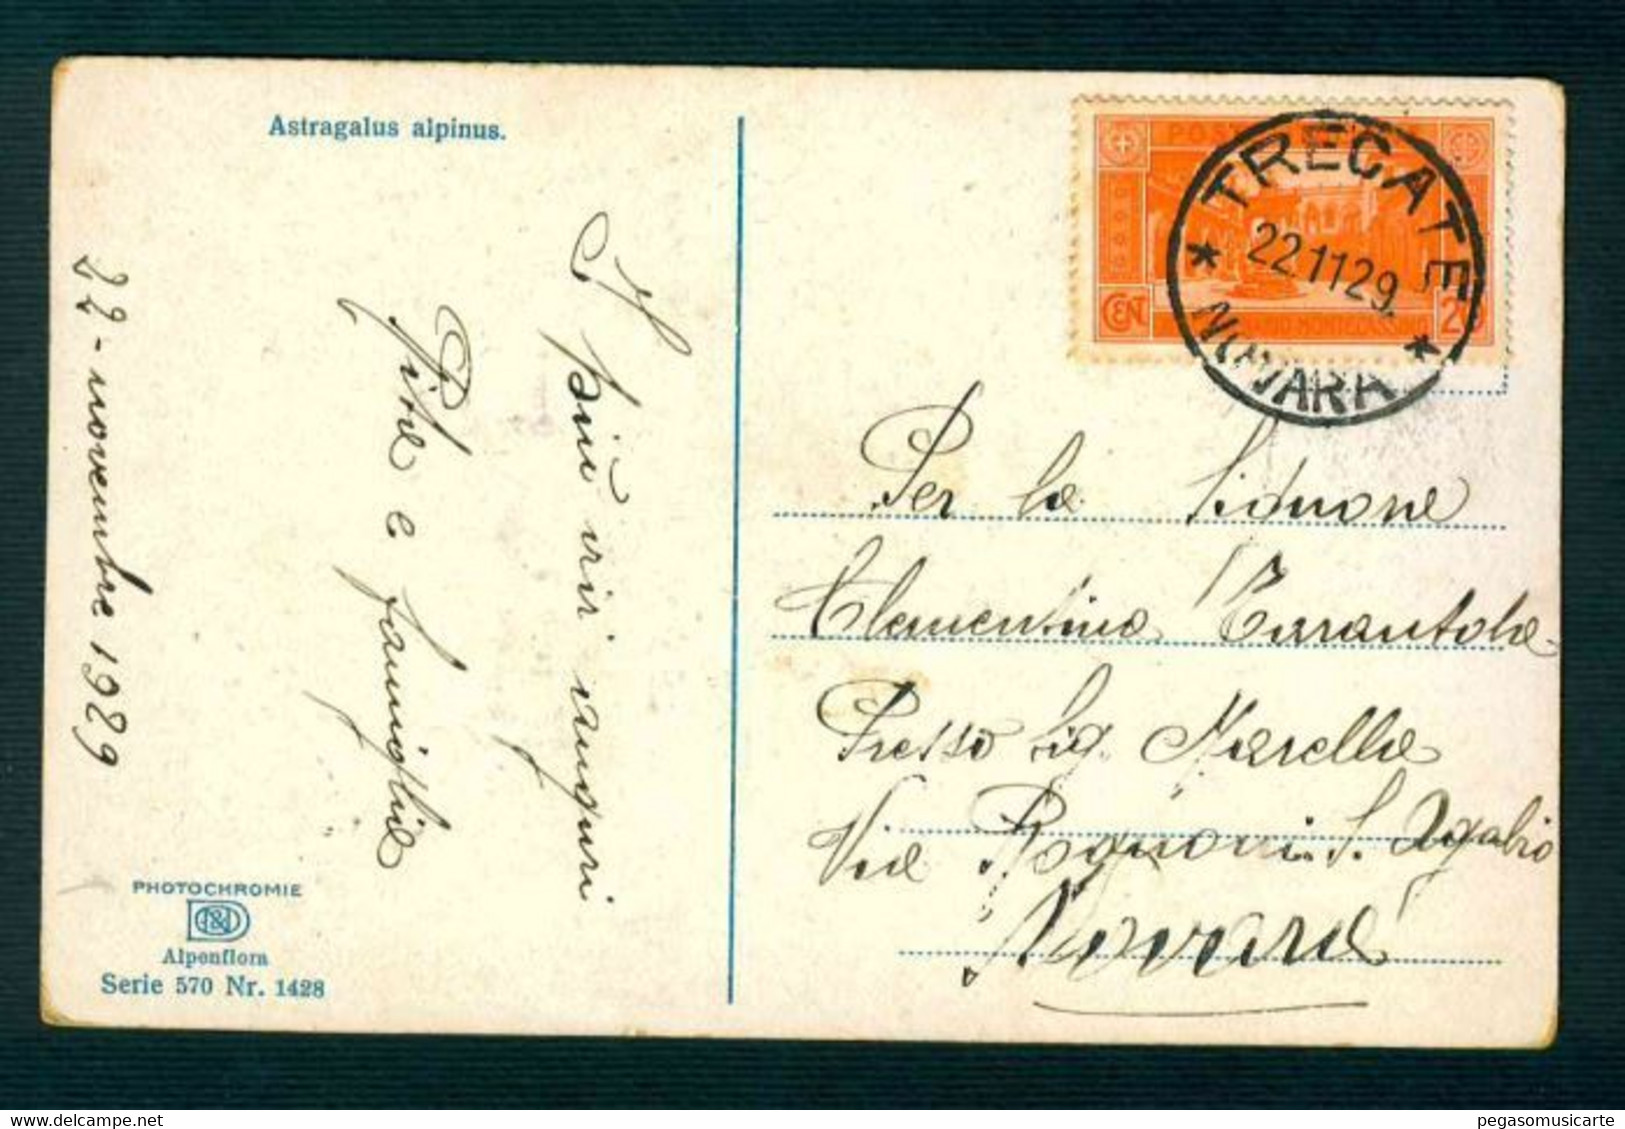 Astragalus alpinus.
22-novembre 1929
I più vivi auguri
Rita e famiglia
PHOTOCHROMIE
Alpenflora
Serie 570 Nr. 1428
CEN
20
MONTECASSINO
* TRECATE *
22.11.29.
NOVARA
Per la Signora
Clementina Tarantola
Presso Sig. Marella
Via Rognoni. S. Agabio
Novara
pegasomusicarte